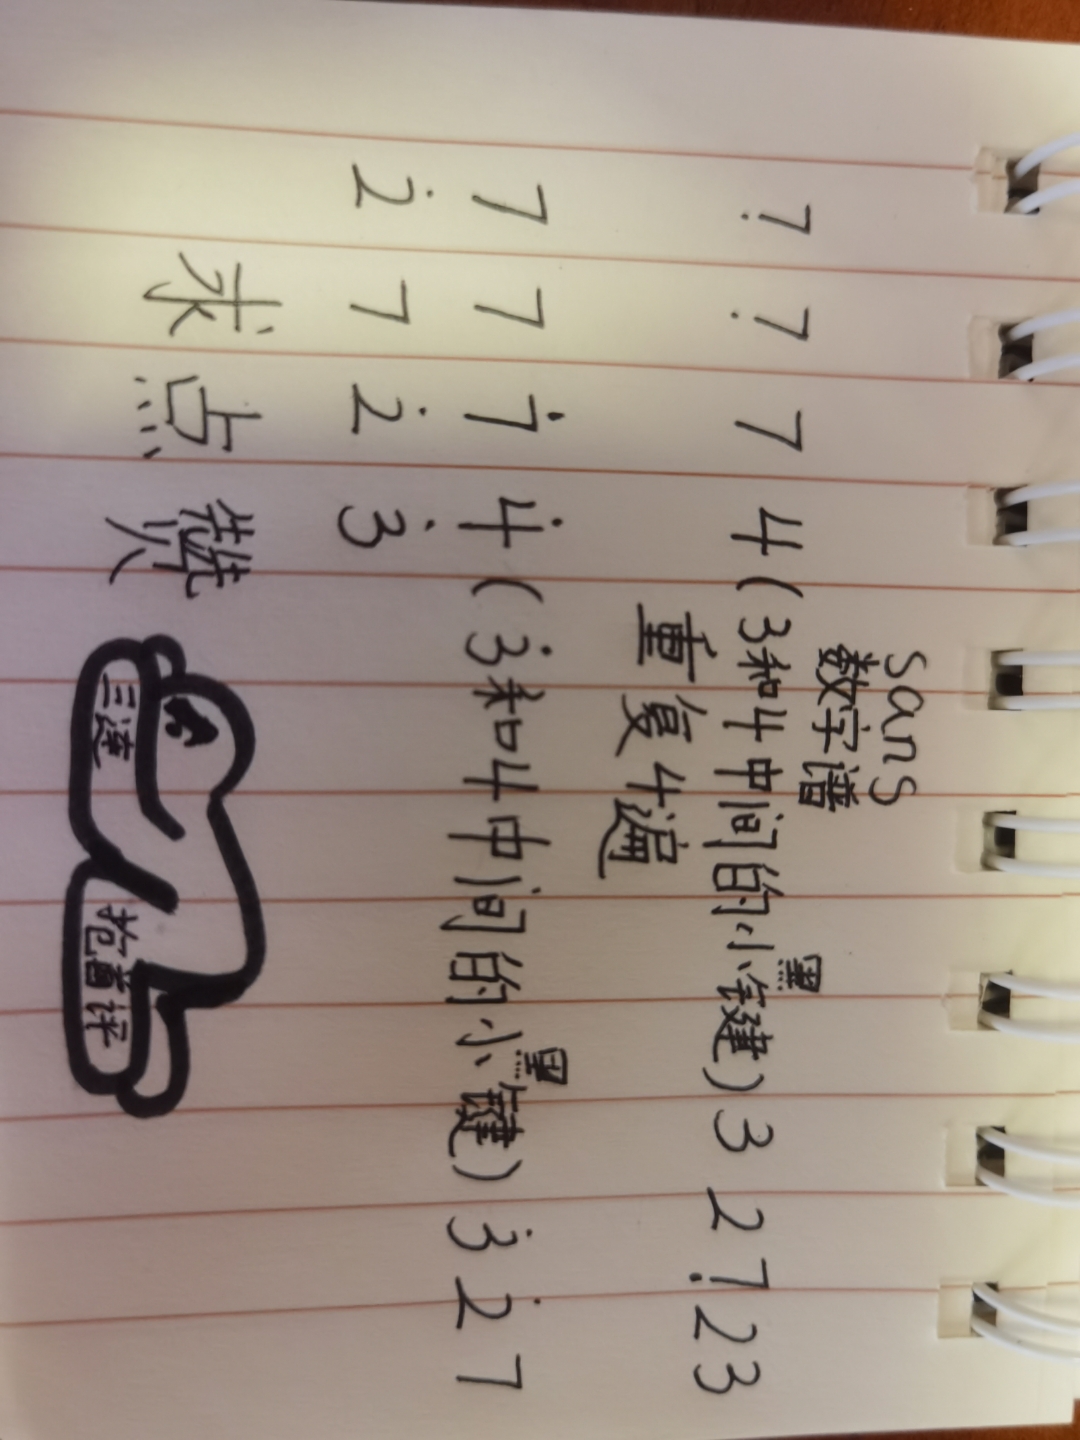 sans
数字谱
7̣ 7̣ 7 4 (3和4中间的小黑键) 3 2 7̣ 2 3
重复4遍
7 7 7̇ 4̇ (3̇和4中间的小黑键) 3̇ 2̇ 7
2̇ 7 2̇ 3̇
求点
三连
抢首评